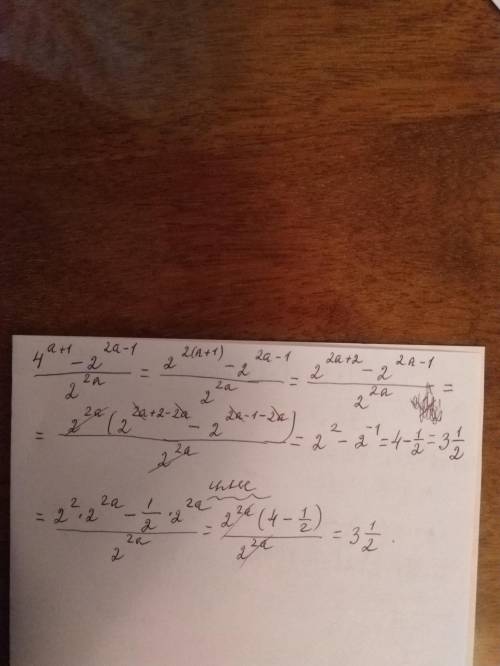 (4^(a+1) - 2^(2a-1))/2^(2a) = (2^(2(a+1)) - 2^(2a-1))/2^(2a) = (2^(2a+2) - 2^(2a-1))/2^(2a) =
= 2^(2a)(2^(2a+2-2a) - 2^(2a-1-2a))/2^(2a) = 2^2 - 2^(-1) = 4 - 1/2 = 3 1/2
или
= (2^2 · 2^(2a) - 1/2 · 2^(2a))/2^(2a) = 2^(2a)(4 - 1/2)/2^(2a) = 3 1/2 .